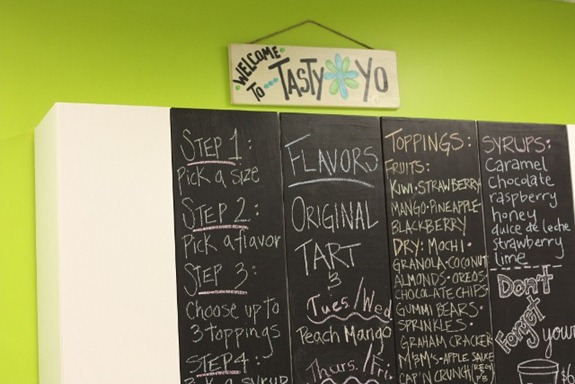 WELCOME
TO... TASTY YO
STEP 1:
Pick a size
STEP 2:
Pick a flavor
STEP 3:
Choose up to
3 toppings
STEP 4:
Pick a syrup
FLAVORS
ORIGINAL
TART
&
Tues/Wed
Peach Mango
Thurs./Fri.
TOPPINGS:
FRUITS:
KIWI·STRAWBERRY
MANGO·PINEAPPLE·
BLACKBERRY
DRY: MOCHI·
GRANOLA·COCONUT
ALMONDS·OREOS·
CHOCOLATE CHIPS
GUMMI BEARS·
SPRINKLES·
GRAHAM CRACKER
M&M'S·APPLE SAUCE
CAP'N CRUNCH
SYRUPS:
Caramel
Chocolate
raspberry
honey
dulce de leche
strawberry
lime
Don't
Forget
your